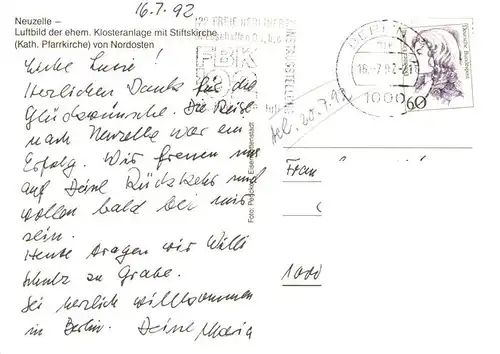 16.7.92
Neuzelle –
Luftbild der ehem. Klosteranlage mit Stiftskirche
(Kath. Pfarrkirche) von Nordosten
Liebe
Herzlichen Dank für die
Glückwünsche. Die Reise
nach Neuzelle war ein
Erfolg. Wir freuen uns
auf Deine Rückkehr und
wollen bald bei mir
sein.
Heute tragen wir Willi
Schulz zu Grabe.
Sei herzlich willkommen
in Berlin. Deine Maria
FBK
BERLIN 12
16.-7.92
1000
Deutsche Bundespost
60
20.7.92
Foto:
Frau
1000